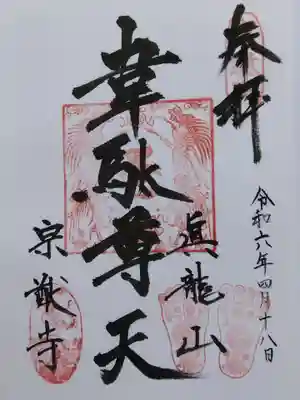 奉拝
令和六年四月十八日
眞龍山
韋駄尊天
宗猷寺